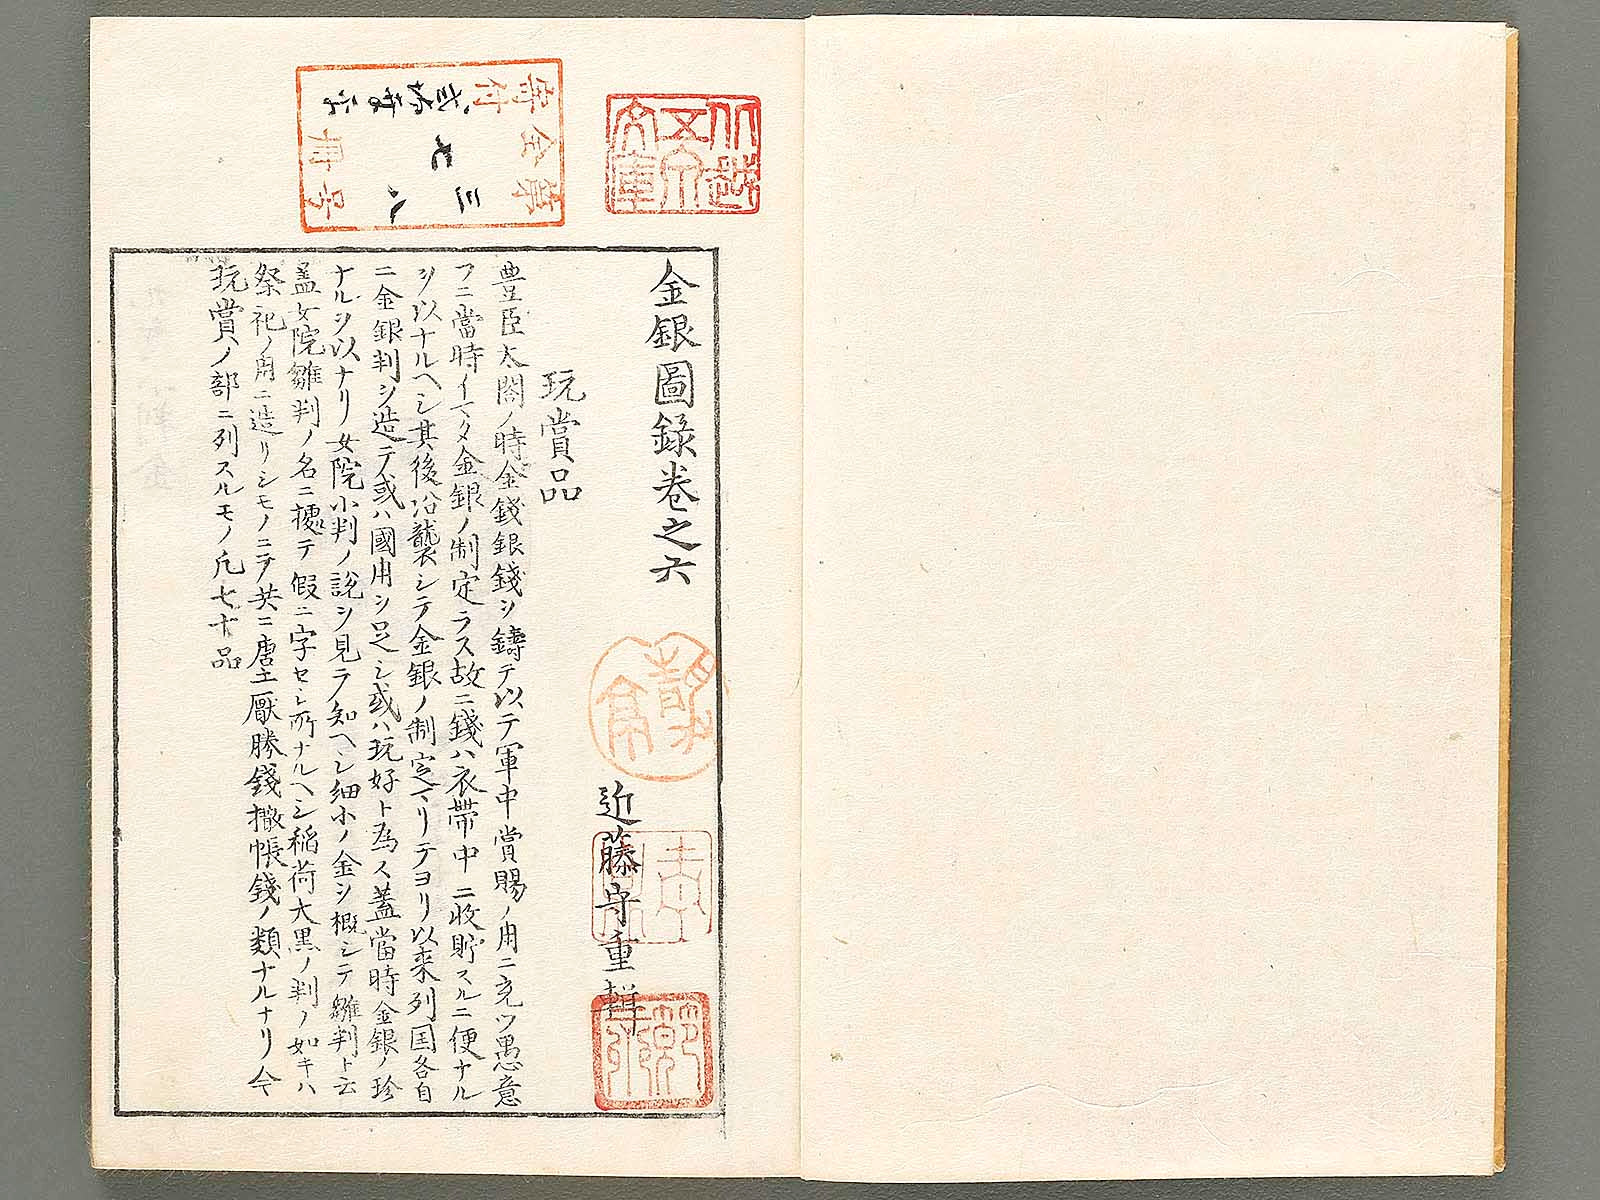 金銀圖錄卷之六
近藤守重輯
玩賞品
豊臣太閤ノ時金錢銀錢ヲ鑄テ以テ軍中賞賜ノ用ニ充ツ愚意
フニ當時イマタ金銀ノ制定ラス故ニ錢ハ衣帶中ニ收貯スルニ便ナル
ヲ以ナルヘシ其後沿襲シテ金銀ノ制定マリテヨリ以来列国各自
ニ金銀判ヲ造テ或ハ國用ヲ足シ或ハ玩好ト為ス蓋當時金銀ノ珍
ナルヲ以ナリ女院小判ノ説ヲ見テ知ヘシ細小ノ金ヲ概シテ雛判ト云
蓋女院雛判ノ名ニ據テ假ニ字セシ所ナルヘシ稲荷大黒ノ判ノ如キハ
祭祀ノ用ニ造リシモノニテ共ニ唐土厭勝錢撒帳錢ノ類ナルナリ今
玩賞ノ部ニ列スルモノ凡七十品
竹越文庫
寄付
金第
七三八
冊号